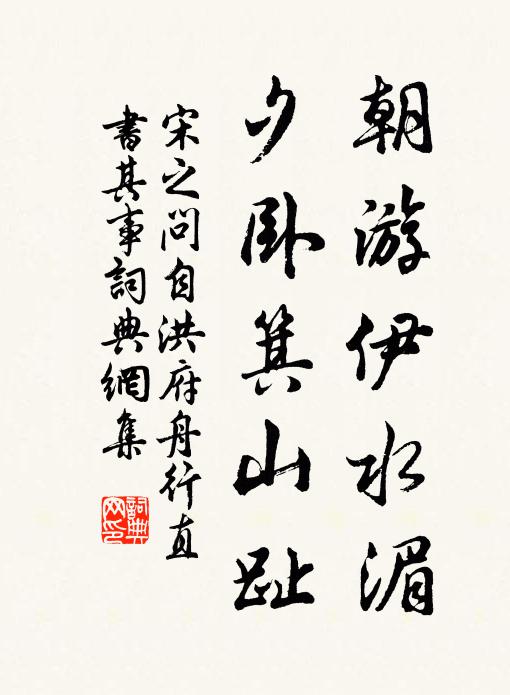 朝游伊水湄
夕卧箕山趾
宋之问自洪府舟行直
書其事詞典網集
詞典网印